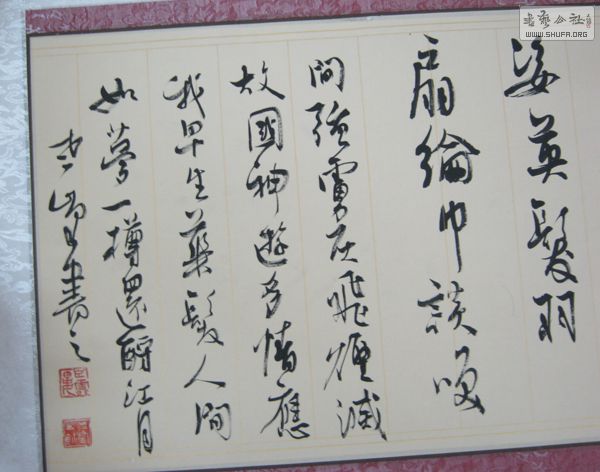 姿英髮羽
扇綸巾談笑
間強虜灰飛煙滅
故國神遊多情應
我早生華髮人間
如夢一樽還酹江月
書之
書藝公社
WWW.SHUFA.ORG